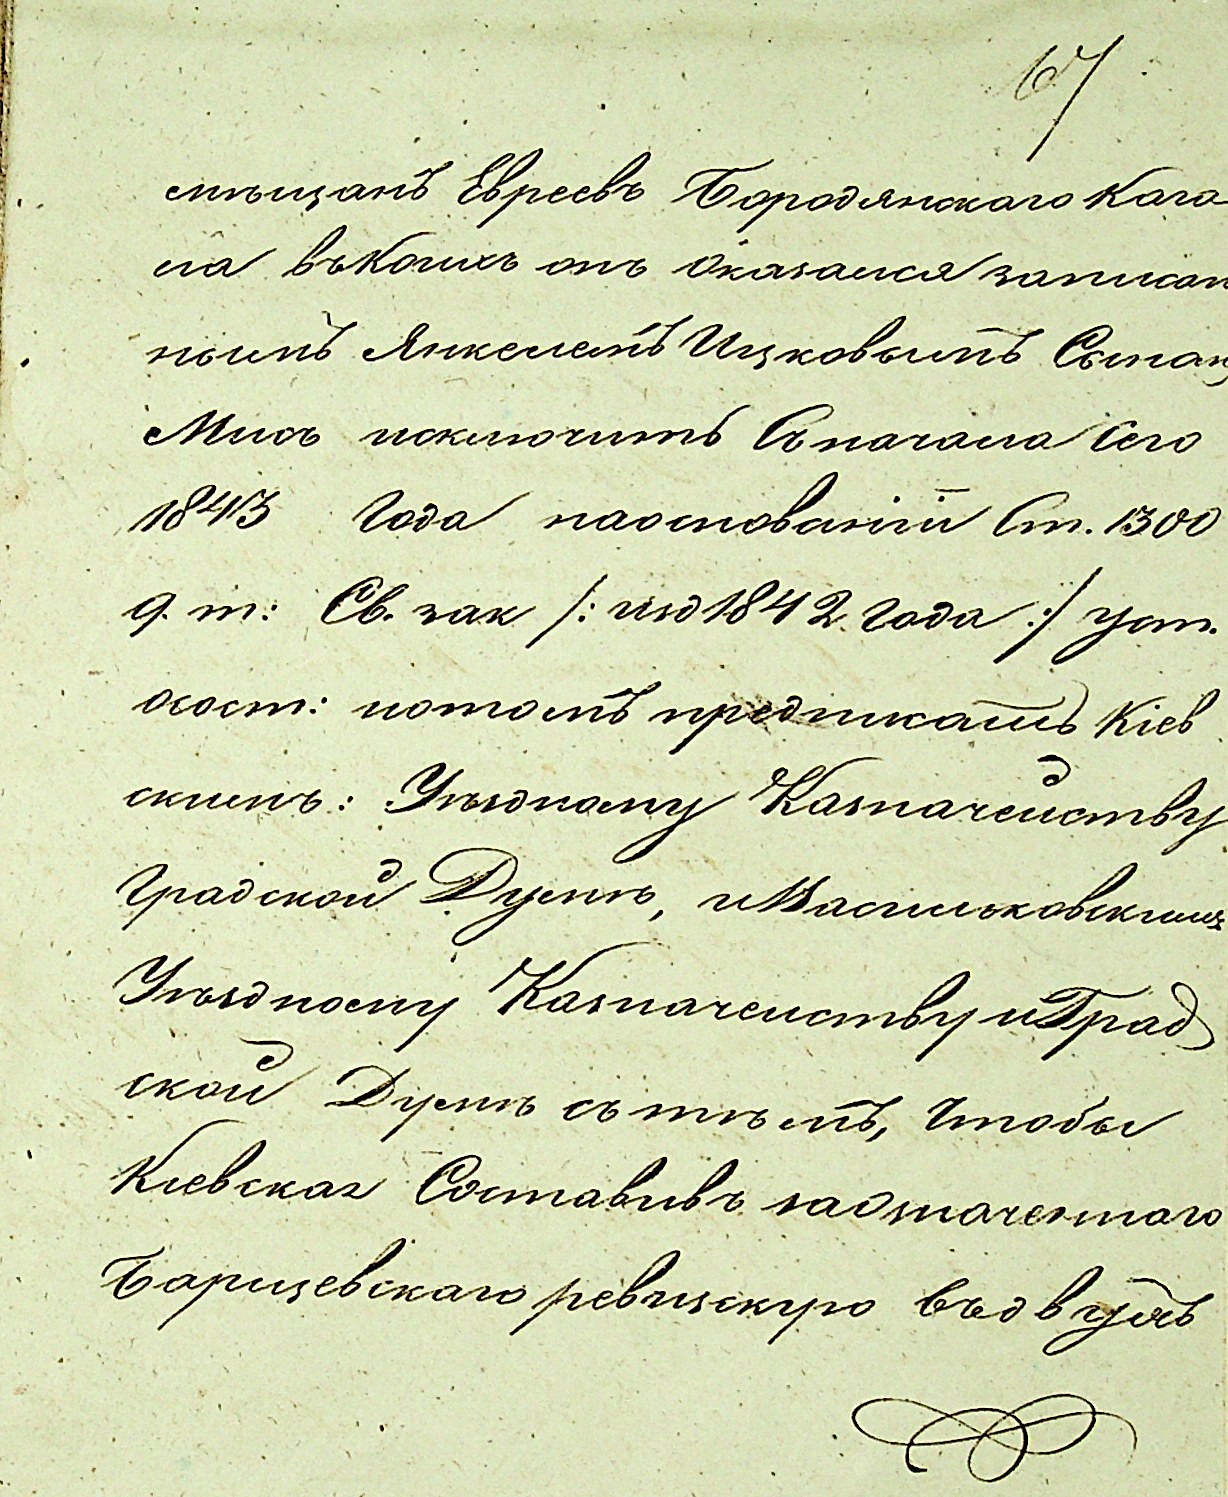 67
мѣщанъ Евреевъ Бородянскаго Кага
ла въ Коихъ онъ оказался записан
нымъ Янкелемъ Ицковымъ
исключить Съ начала Сего
1843 Года наоснованіи Ст. 1300
9. т: Св. зак /: изд 1842 года :/ уст.
осост: потомъ предписать Кіев
скимъ: Уѣздному Казначейству
Градской Думѣ, и Васильковскимъ
Уѣздному Казначейству и Град
ской Думѣ съ тѣмъ, Чтобы
Кіевская Составивъ наозначеннаго
Барщевскаго ревизскую въ двухъ